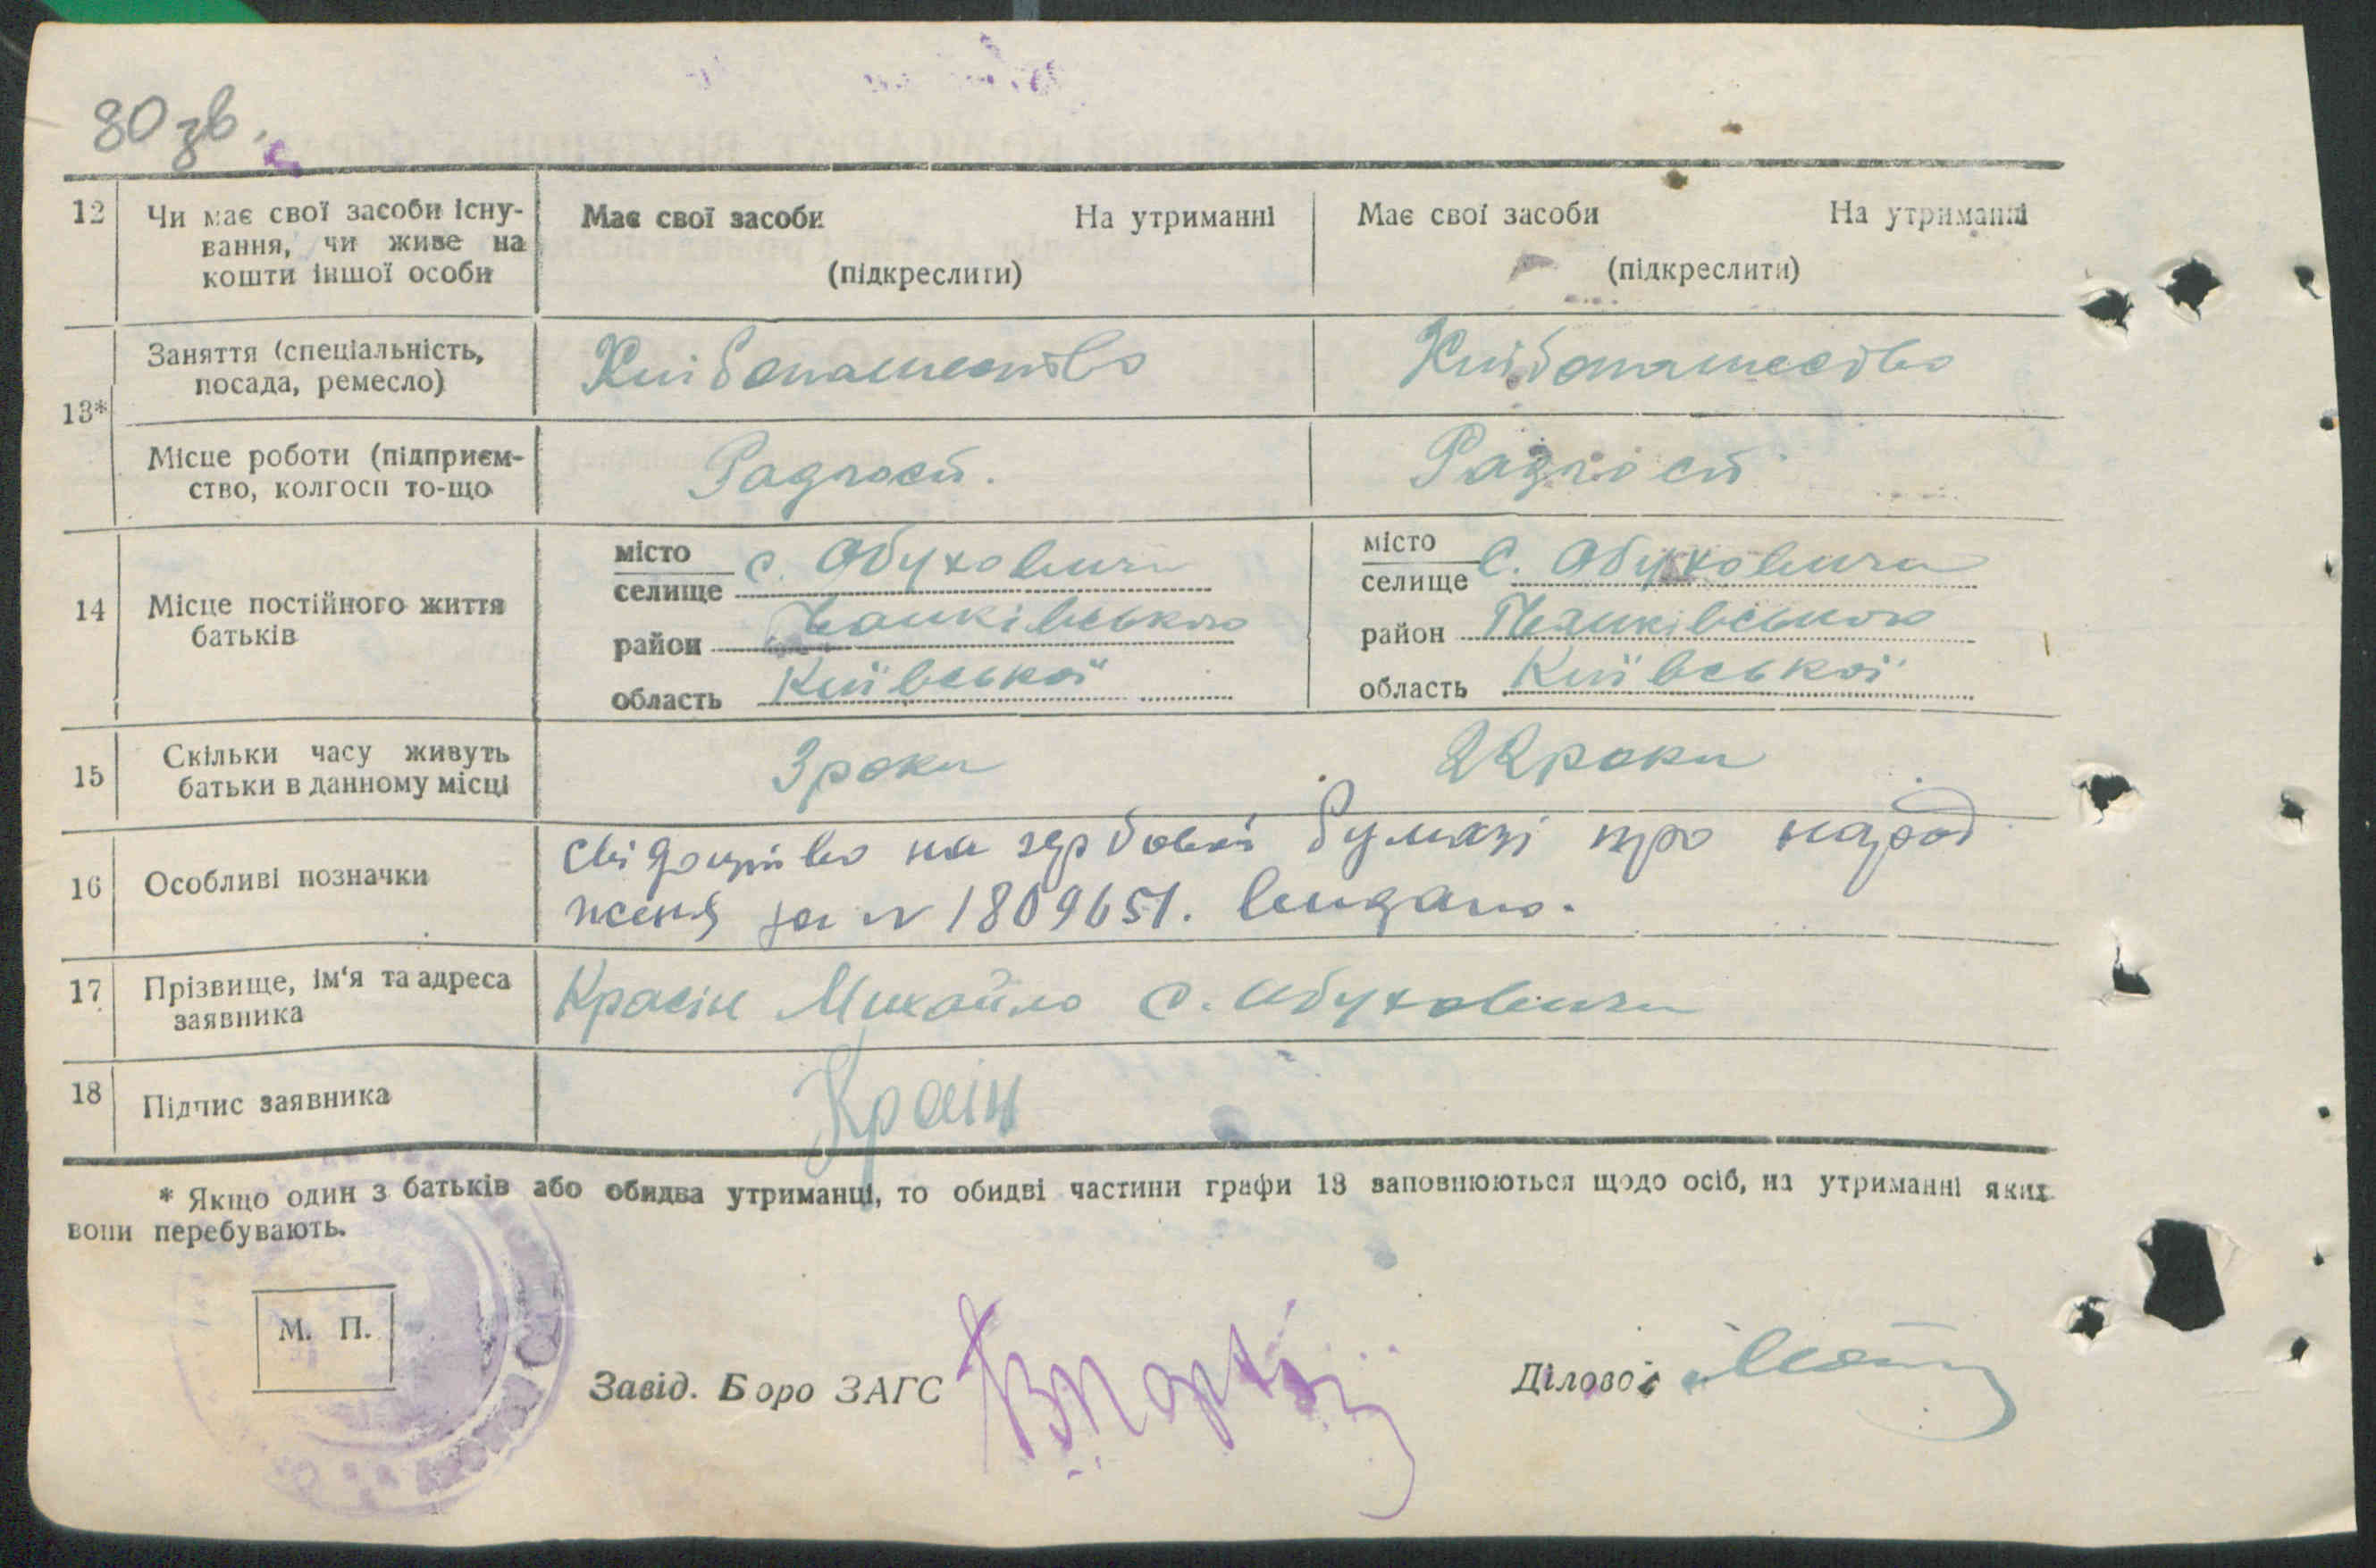 80 зв.
12 Чи має свої засоби існу- Має свої засоби На утриманні Має свої засоби На утриманні
вання, чи живе на
кошти іншої особи (підкреслити) (підкреслити)
13*
Заняття (спеціальність,
посада, ремесло) Хлібопашество Хлібопашество
Місце роботи (підприєм-
ство, колгосп то-що Радгосп. Радгосп
14 Місце постійного життя
батьків
місто
селище с. Обуховичи
район
область Київської
місто
селище с. Обуховичи
район
область Київської
15 Скільки часу живуть
батьки в данному місці 3 роки 22 роки
16 Особливі позначки
на гербовій бумазі про народ
женя за № 1809651. видано.
17 Прізвище, ім'я та адреса
заявника Красін Михайло с. Обуховичи
18 Підпис заявника
* Якщо один з батьків або обидва утриманці, то обидві частини графи 13 заповнюються щодо осіб, на утриманні яких
вони перебувають.
М. П.
Завід. Боро ЗАГС
Діловод